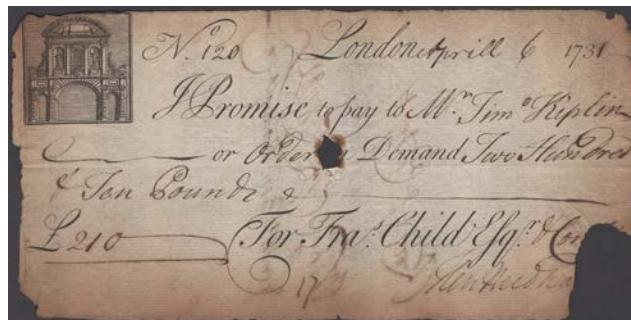 No 120 London Aprill 6 1731
I Promise to pay to Mr. Timo Kiplin
or Order on Demand Two Hundred
& Ten Pounds &
£ 210 For Fras. Child Esqr. & Com
17